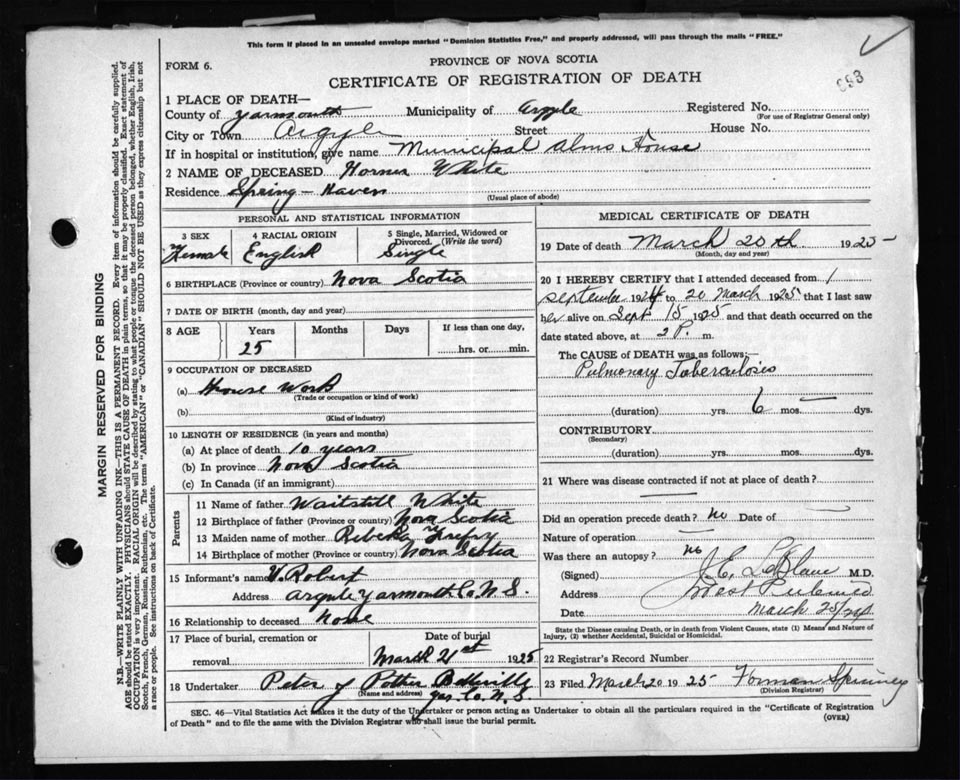 This form if placed in an unsealed envelope marked "Dominion Statistics Free," and properly addressed, will pass through the mails "FREE."
PROVINCE OF NOVA SCOTIA
FORM 6.
CERTIFICATE OF REGISTRATION OF DEATH
693
1 PLACE OF DEATH—
County of Yarmouth Municipality of Argyle Registered No.
(For use of Registrar General only)
City or Town Argyle Street House No.
If in hospital or institution, give name Municipal Alms House
2 NAME OF DECEASED White
Residence Spring-Haven
(Usual place of abode)
PERSONAL AND STATISTICAL INFORMATION
3 SEX
Female
4 RACIAL ORIGIN
English
5 Single, Married, Widowed or Divorced. (Write the word)
Single
6 BIRTHPLACE (Province or country) Nova Scotia
7 DATE OF BIRTH (month, day and year)
8 AGE Years Months Days If less than one day,
25 hrs. or min.
9 OCCUPATION OF DECEASED
(a) House Work
(Trade or occupation or kind of work)
(b)
(Kind of industry)
10 LENGTH OF RESIDENCE (in years and months)
(a) At place of death 10 years
(b) In province Nova Scotia
(c) In Canada (if an immigrant)
Parents
11 Name of father Waitstill White
12 Birthplace of father (Province or country) Nova Scotia
13 Maiden name of mother
14 Birthplace of mother (Province or country) Nova Scotia
15 Informant's name V. Robert
Address Argyle Yarmouth Co. N.S.
16 Relationship to deceased None
17 Place of burial, cremation or removal
Date of burial
March 21st 1925
18 Undertaker Peter J Pottier Belleville
(Name and address) Yar. Co. N.S.
MEDICAL CERTIFICATE OF DEATH
19 Date of death March 20th 1925
(Month, day and year)
20 I HEREBY CERTIFY that I attended deceased from 1
September 1924 to 20 March 1925 that I last saw
her alive on Sept 15 1925 and that death occurred on the
date stated above, at 2 P. m.
The CAUSE OF DEATH was as follows:—
Pulmonary Tuberculosis
(duration) yrs. 6 mos. — dys.
CONTRIBUTORY
(Secondary)
(duration) yrs. mos. dys.
21 Where was disease contracted if not at place of death?
Did an operation precede death? No Date of —
Nature of operation —
Was there an autopsy? No
(Signed) J. E. LeBlanc M.D.
Address West Pubnico
Date March 25/
State the Disease causing Death, or in death from Violent Causes, state (1) Means and Nature of Injury, (2) whether Accidental, Suicidal or Homicidal.
22 Registrar's Record Number
23 Filed March 20 1925 Forman Spinney
(Division Registrar)
SEC. 46—Vital Statistics Act makes it the duty of the Undertaker or person acting as Undertaker to obtain all the particulars required in the "Certificate of Registration
of Death" and to file the same with the Division Registrar who shall issue the burial permit.
(OVER)
MARGIN RESERVED FOR BINDING
N.B.—WRITE PLAINLY WITH UNFADING INK—THIS IS A PERMANENT RECORD. Every item of information should be carefully supplied.
AGE should be stated EXACTLY. PHYSICIANS should STATE CAUSE OF DEATH in plain terms, so that it may be properly classified. Exact statement of
OCCUPATION is very important. RACIAL ORIGIN will be described by stating to what people or tongue the deceased person belonged, whether English, Irish,
Scotch, French, German, Russian, Ruthenian, etc. The terms "AMERICAN" or "CANADIAN" SHOULD NOT BE USED as they express citizenship but not
a race or people. See instructions on back of Certificate.